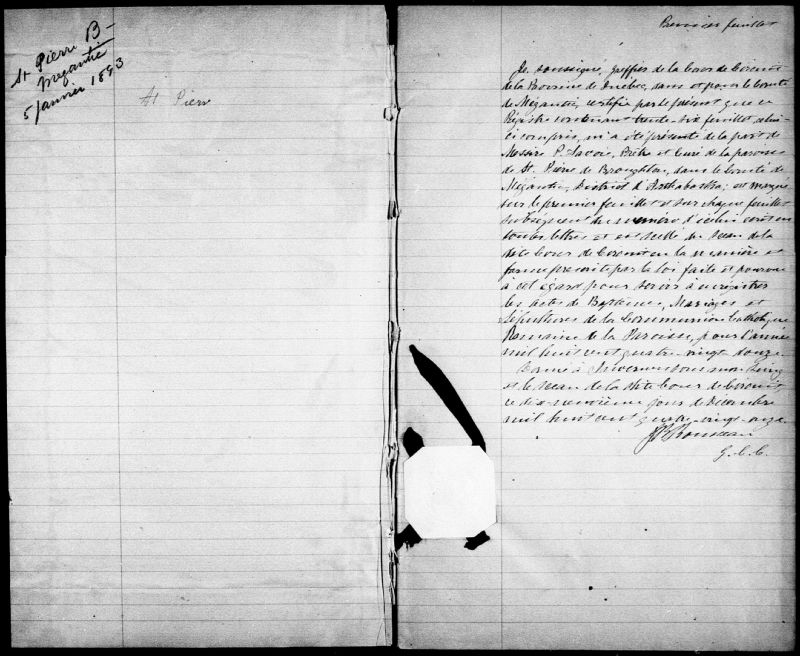 St Pierre B-
Megantic
5 Janvier 1893
St Pierre
Premier feuillet
Je soussigné, greffier de la Cour de Circuit
de la Province de Québec, dans et pour le Comté
de Mégantic, certifie par le présent que ce
Régistre contenant trente-six feuillets, celui-
ci compris, m'a été présenté de la part de
Messire P. Savoie, Prêtre et Curé de la paroisse
de St. Pierre de Broughton, dans le Comté de
Mégantic, District d'Arthabaska; est marqué
sur le premier feuillet et sur chaque feuillet
subséquent du numéro d'icelui écrit en
toutes lettres et est scellé du sceau de la
dite Cour de Circuit en la manière et
forme prescrite par la loi faite et pourvue
à cet égard pour servir à enrégistrer
les actes de Baptêmes, Mariages et
Sépultures de la Communion Catholique
Romaine de la Paroisse, pour l'année
mil huit cent quatre-vingt douze.
Donné à Inverness sous mon seing
et le sceau de la dite Cour de Circuit
ce dix-neuvième jour de Décembre
mil huit cent quatre-vingt-onze.
Rousseau
G.C.C.